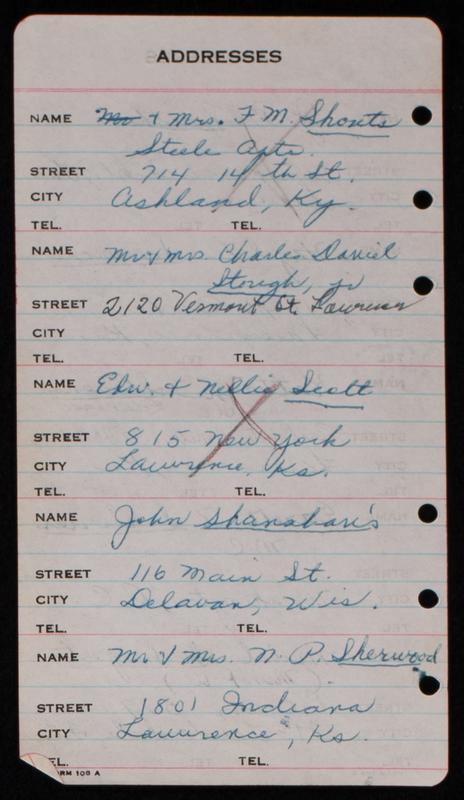 ADDRESSES
NAME Mr & Mrs. F M. Shouts
Steele Apts.
STREET 714 14 th St.
CITY Ashland, Ky.
TEL. TEL.
NAME Mr & Mrs. Charles Daniel
Stough, Jr
STREET 2120 Vermont St. Lawrence
CITY
TEL. TEL.
NAME Edw. & Nellie Scott
STREET 815 New York
CITY Lawrence, Ks.
TEL. TEL.
NAME John Shanahan's
STREET 116 Main St.
CITY Delavan, Wis.
TEL. TEL.
NAME Mr & Mrs. N. P. Sherwood
STREET 1801 Indiana
CITY Lawrence, Ks.
EL. TEL.
RM 108 A